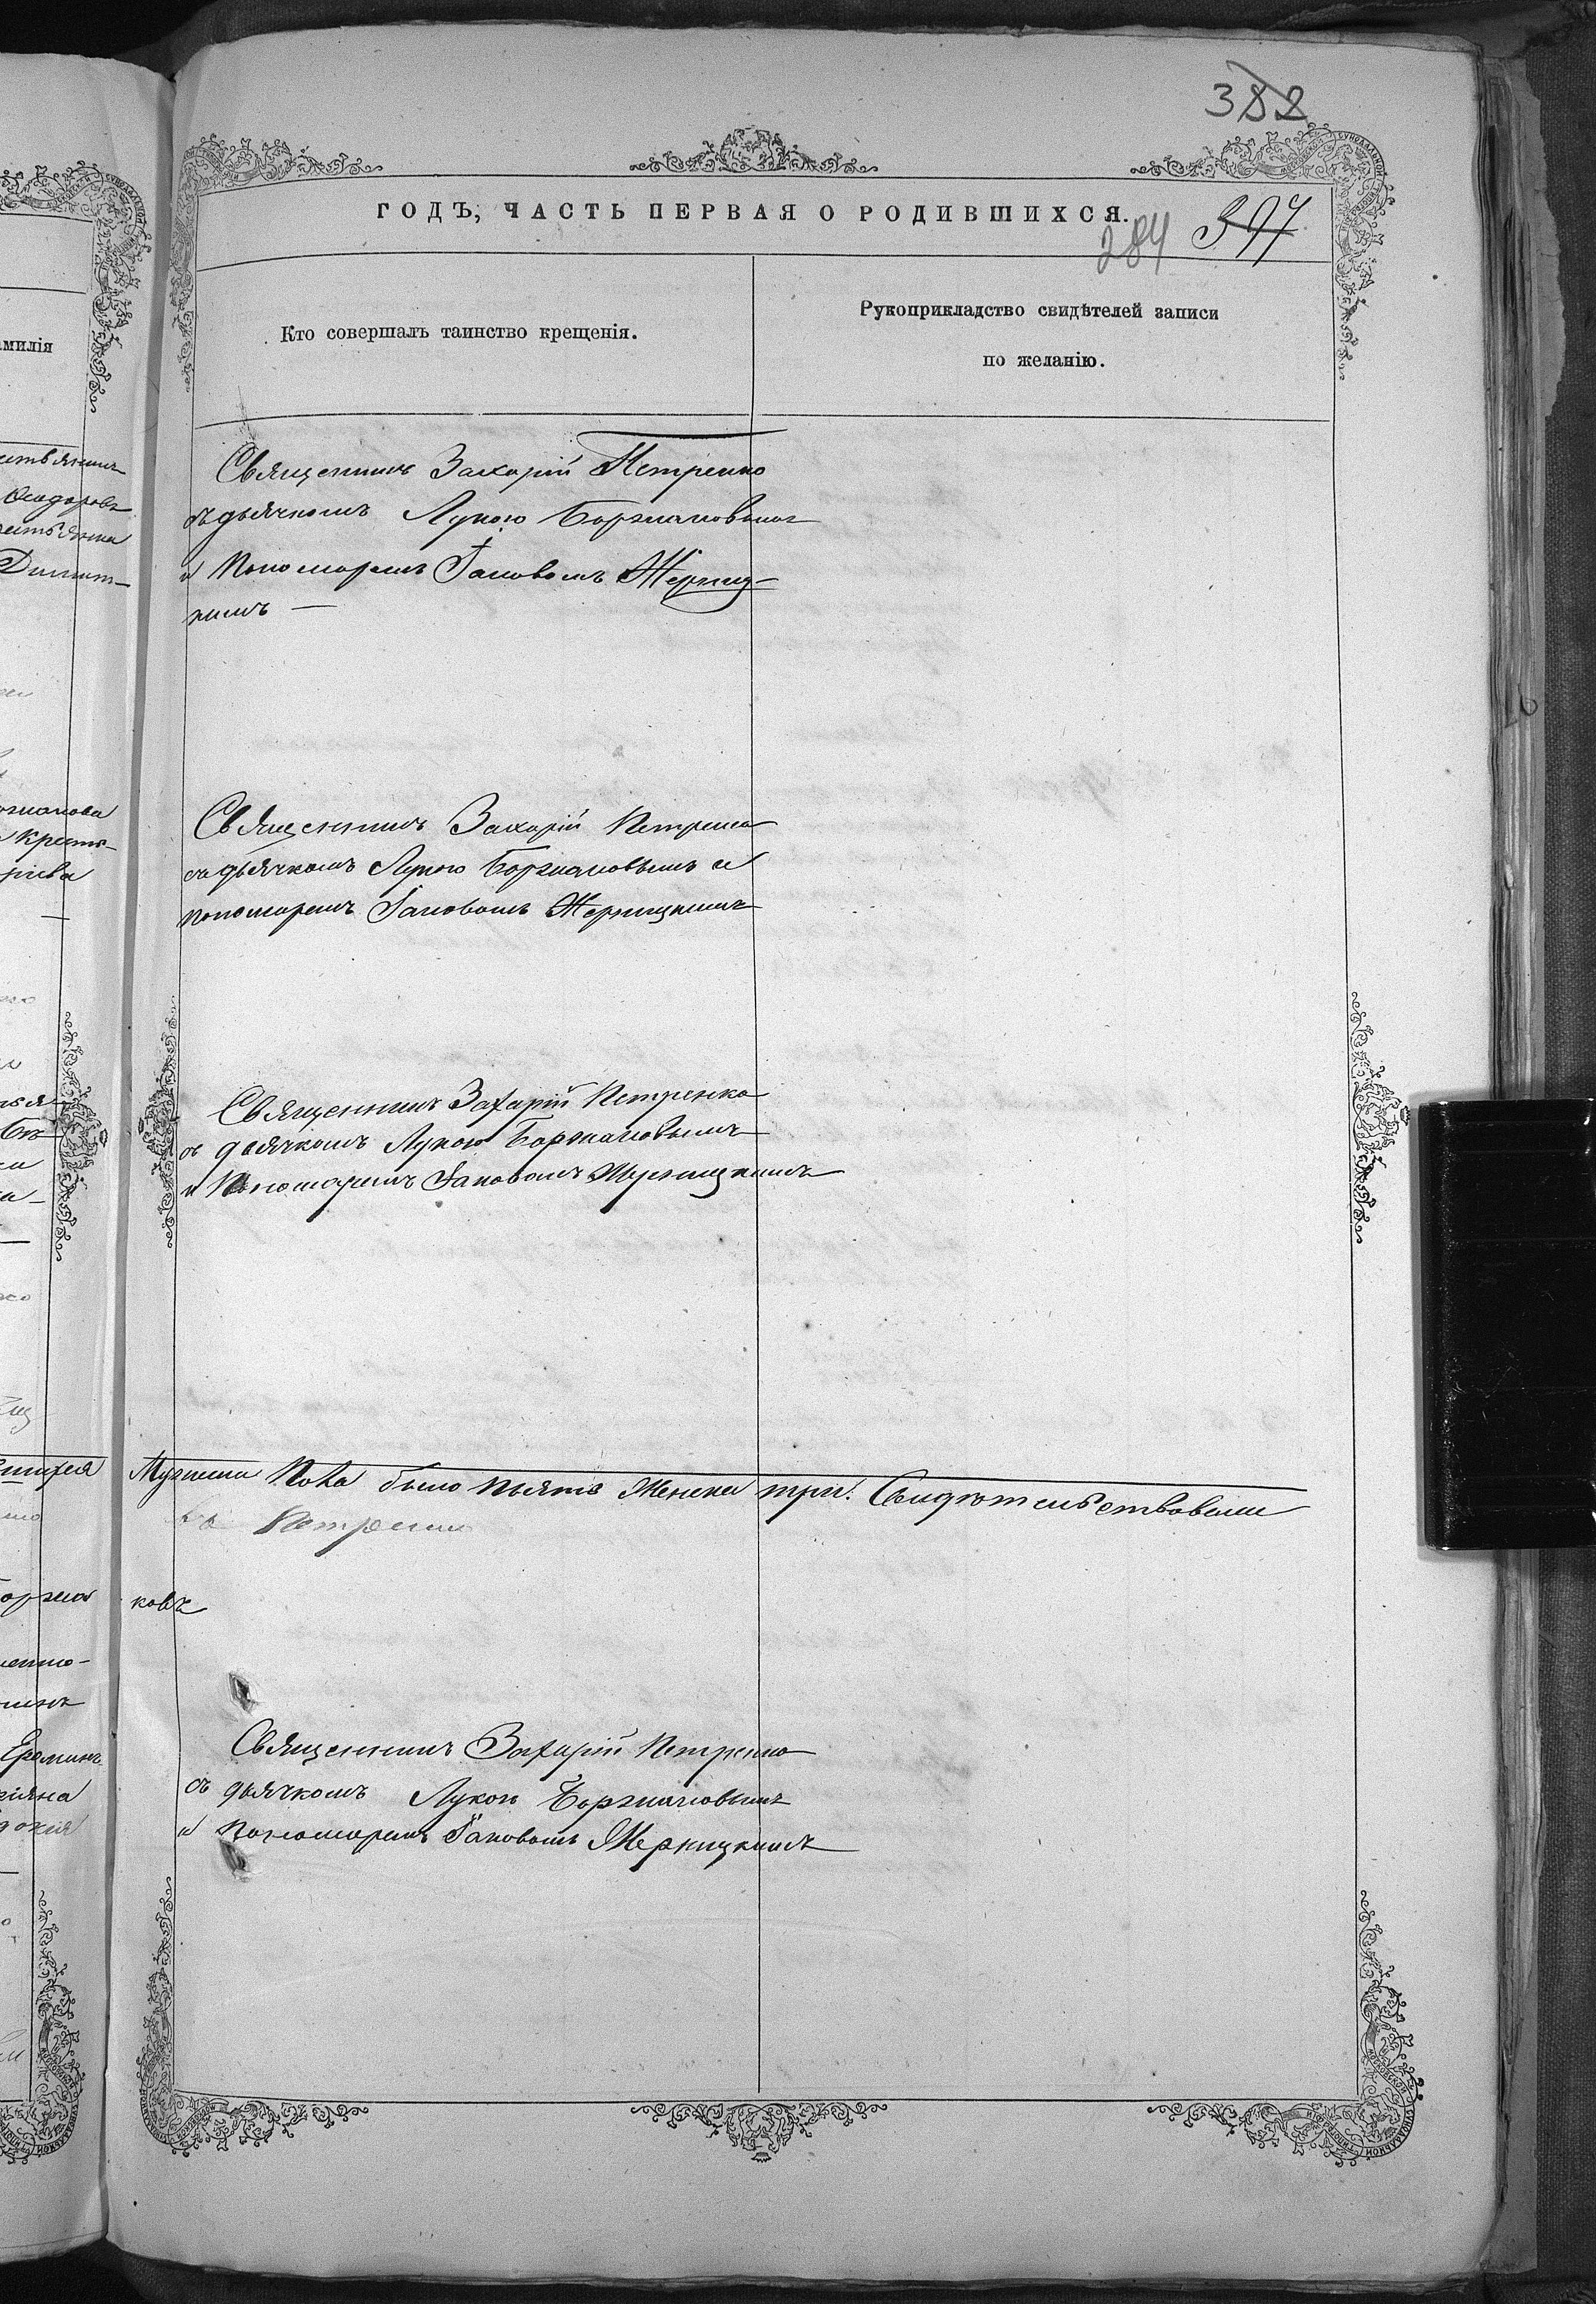 388
ГОДЪ, ЧАСТЬ ПЕРВАЯ О РОДИВШИХСЯ.
284 397
Кто совершалъ таинство крещенія.
Рукоприкладство свидѣтелей записи
по желанію.
милія
Священникъ Захарій Петренко
съ дьячкомъ Лукою Боржаковымъ
и Пономаремъ Іаковомъ Жерниц-
кимъ —
Священникъ Захарій Петренко
съ дьячкомъ Лукою Боржаковымъ и
пономаремъ Іаковомъ Жерницкимъ
Священникъ Захарій Петренко
съ дьячкомъ Лукою Боржаковымъ
и Пономаремъ Іаковомъ Жерницкимъ
Мужеска Пола было пьять Женска три. Свидѣтельствовали
Петренко
ковъ
Священникъ Захарій Петренко
съ дьячкомъ Лукою Боржаковымъ
и пономаремъ Іаковомъ Жерницкимъ